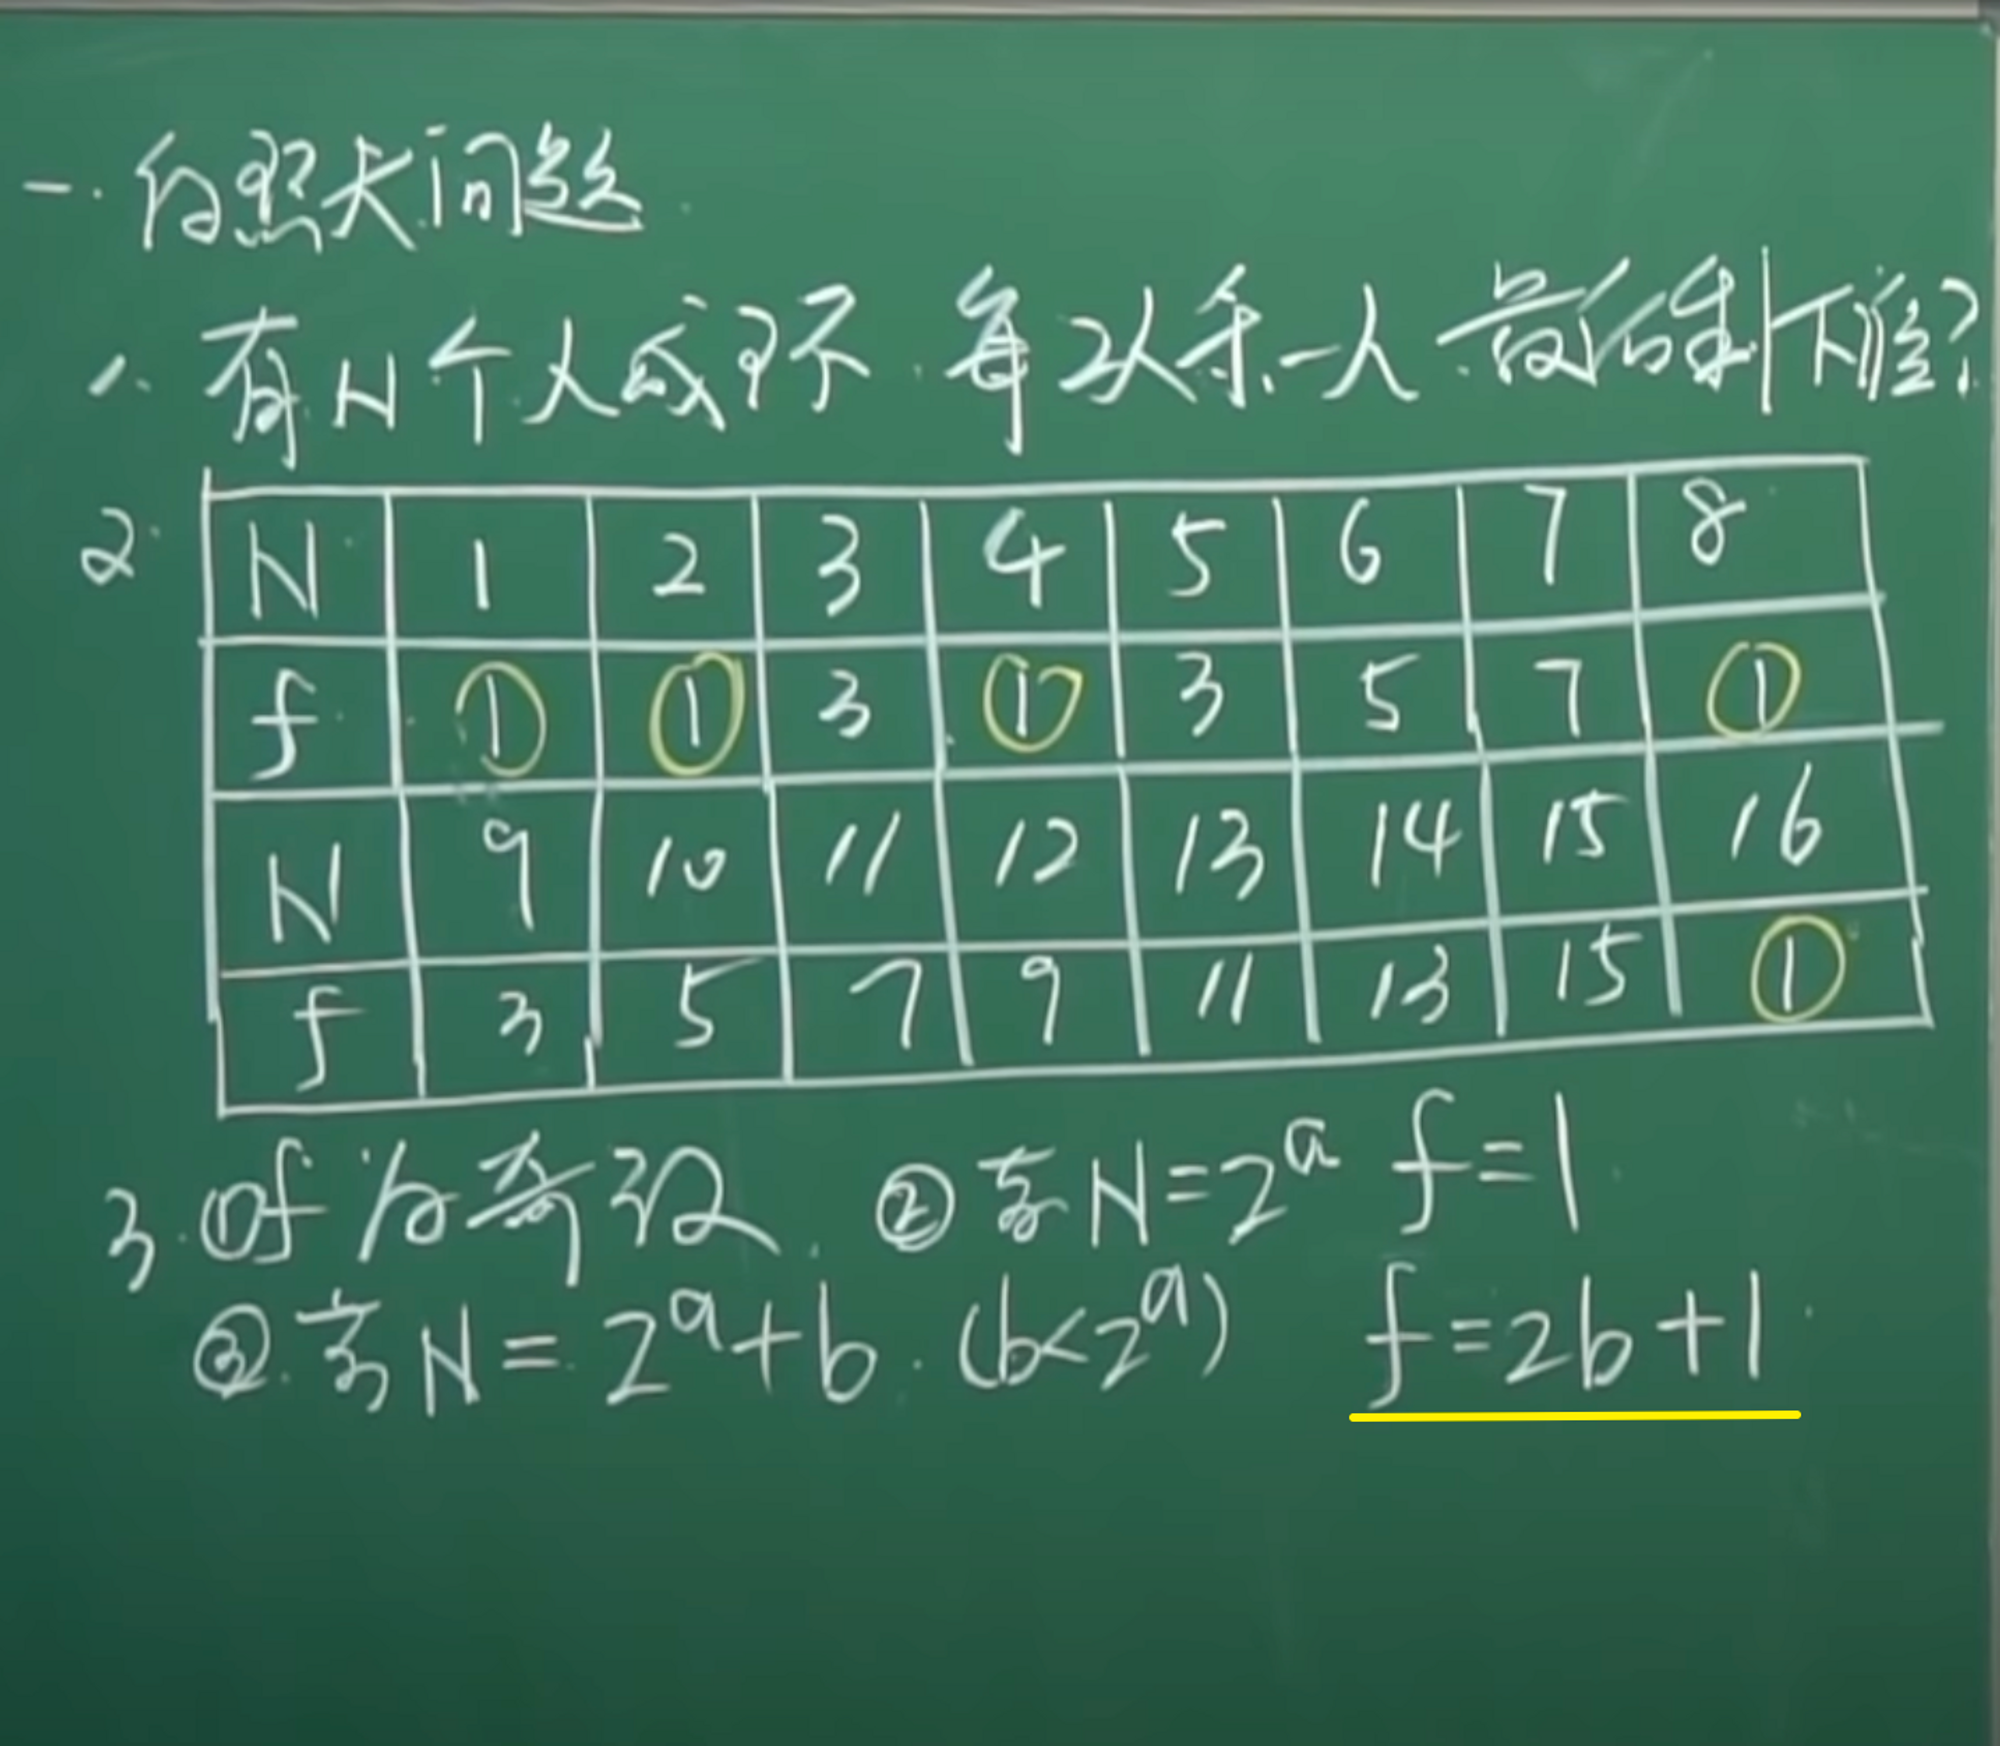 一.约瑟夫问题
1.有N个人成环.每次杀一人.最后剩下谁?
2.
N 1 2 3 4 5 6 7 8
f 1 1 3 1 3 5 7 1
N 9 10 11 12 13 14 15 16
f 3 5 7 9 11 13 15 1
3.①f为奇数. ②若N=2^a f=1
③.若N=2^a+b.(b<2^a) f=2b+1